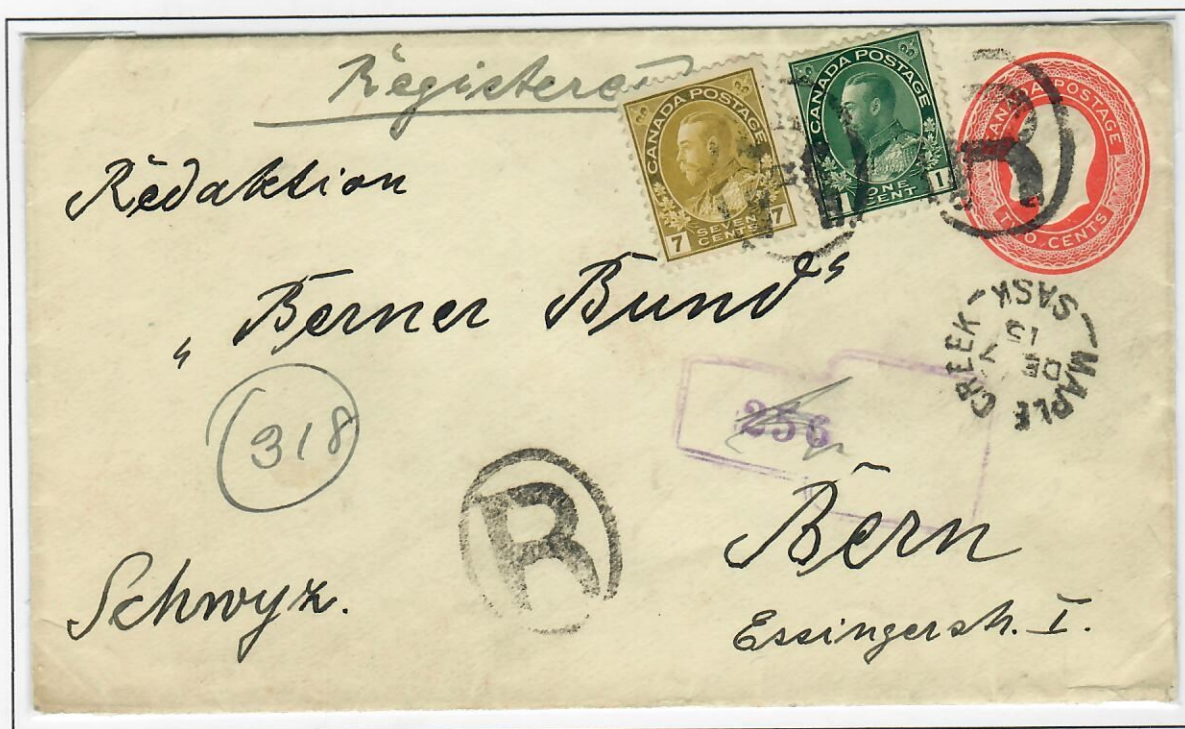 Registered
CANADA POSTAGE
7 SEVEN CENTS 7
CANADA POSTAGE
1 ONE CENT 1
CANADA POSTAGE
TWO CENTS
R
Redaktion
"Berner Bund"
MAPLE CREEK
SASK
DE
7
15
256
318
R
Bern
Schwyz.
Essingerstr. I.